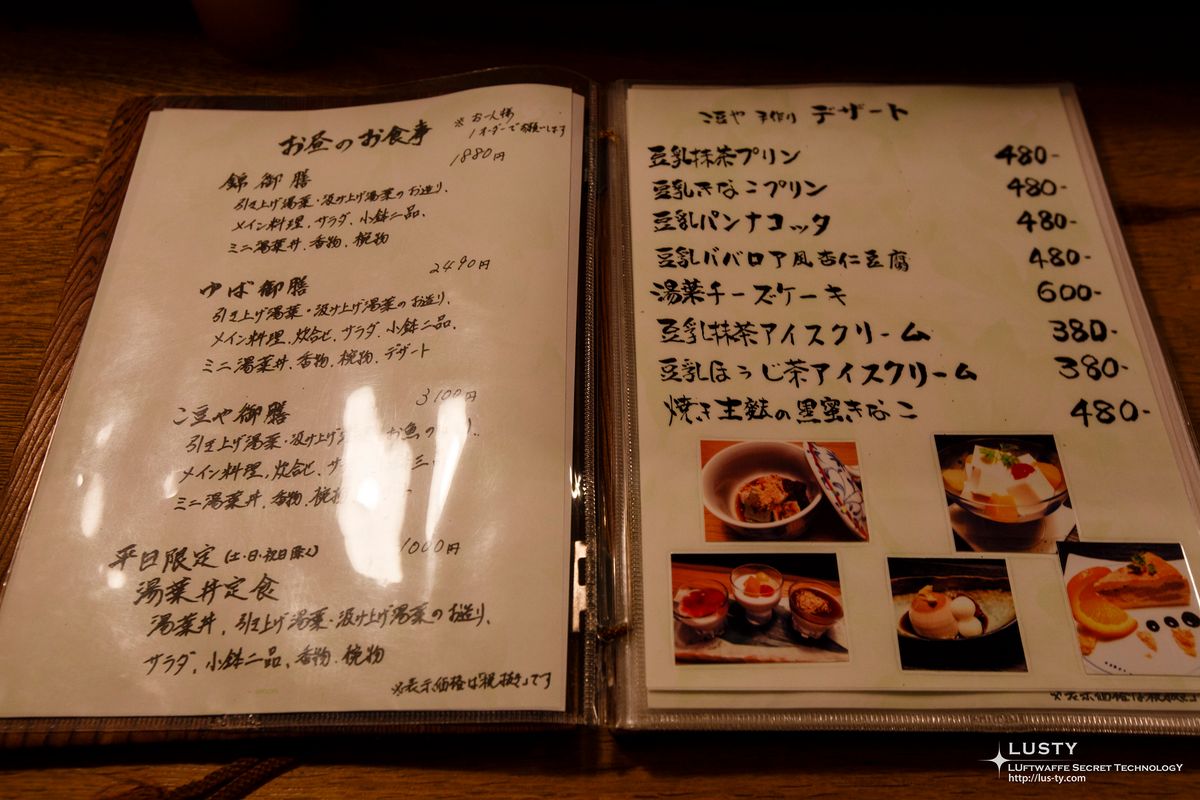 お昼のお食事
※お一人様
1オーダーでお願いします
錦御膳
1880円
引き上げ湯葉・汲み上げ湯葉のお造り、
メイン料理、サラダ、小鉢二品、
ミニ湯葉丼、香物、椀物
ゆば御膳
2490円
引き上げ湯葉・汲み上げ湯葉のお造り、
メイン料理、炊合せ、サラダ、小鉢二品、
ミニ湯葉丼、香物、椀物、デザート
こ豆や御膳
3100円
引き上げ湯葉・汲み上げ お魚の
メイン料理、炊合せ、サ 三
ミニ湯葉丼、香物、椀
平日限定(土・日・祝日除く)
1000円
湯葉丼定食
湯葉丼、引き上げ湯葉・汲み上げ湯葉のお造り、
サラダ、小鉢二品、香物、椀物
※表示価格は「税抜き」です
こ豆や 手作り デザート
豆乳抹茶プリン 480-
豆乳きなこプリン 480-
豆乳パンナコッタ 480-
豆乳ババロア風杏仁豆腐 480-
湯葉チーズケーキ 600-
豆乳抹茶アイスクリーム 380-
豆乳ほうじ茶アイスクリーム 380-
焼き生麩の黒蜜きなこ 480-
※表示価格は税抜
LUSTY
LUFTWAFFE SECRET TECHNOLOGY
http://lus-ty.com